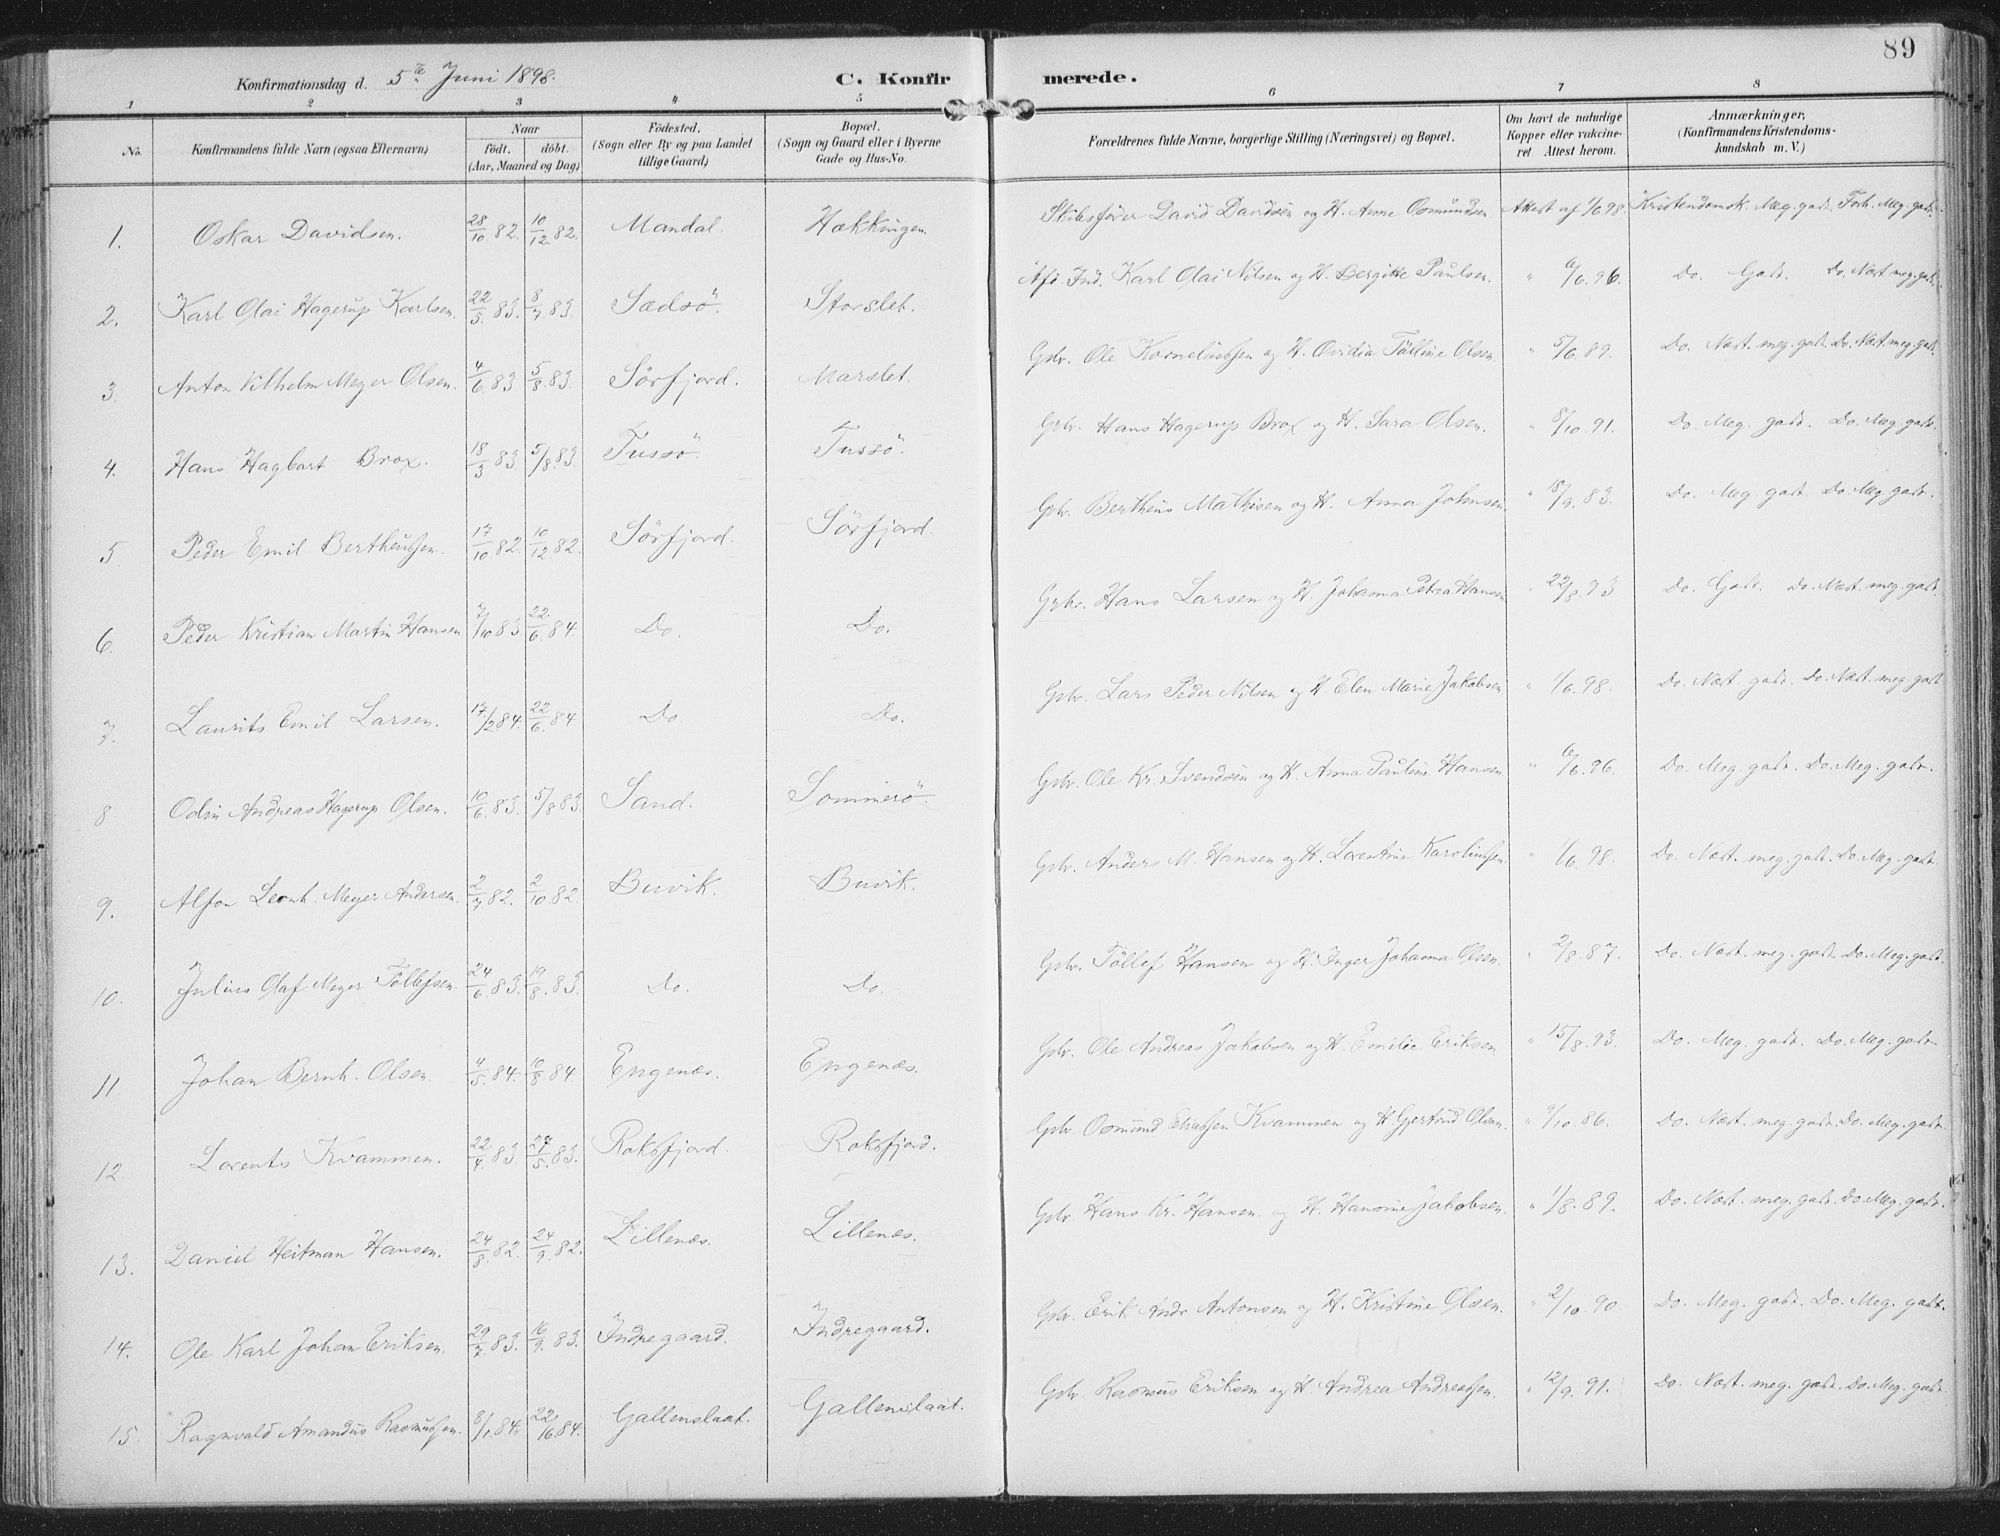 89
Konfirmationsdag d. 5te Juni 1898. C. Konfirmerede.
1 2 3 4 5 6 7 8
No. Konfirmandens fulde Navn (ogsaa Efternavn) Naar født. døbt. (Aar, Maaned og Dag) Fødested. (Sogn eller By og paa Landet tillige Gaard) Bopæl. (Sogn og Gaard eller i Byerne Gade og Hus-No. Forældrenes fulde Navne, borgerlige Stilling (Næringsvei) og Bopæl. Om havt de naturlige Kopper eller vakcineret. Attest herom. Anmærkninger, (Konfirmandens Kristendomskundskab m. V.)
1. Oskar Davidsen. 28/10 82. 10/12 82. Mandal. Hækkingen. Skibsfører David Davidsen og H. Anne Osmundsen Attest af 1/6 98. Kristendomsk. Meg. godt. Forh. Meg. godt.
2. Karl Olai Hagerup Karlsen. 22/5 83. 8/7 83. Sædsö. Storslet. Afd. Ind. Karl Olai Nilsen og H. Bergitte Paulsen. " 6/6. 96. Do. Godt. Do. Næst. meg. godt.
3. Anton Vilhelm Meyer Olsen. 4/6 83 5/8 83. Sörfjord. Marslet. Gbr. Ole Korneliussen og H. Ovidia Tölline Olsen. " 5/6 89. Do. Næst. meg. godt. Do. Næst. meg. godt.
4. Hans Hagbart Brox. 18/3 83. 5/8 83. Tussö. Tussö. Gbr. Hans Hagerup Brox og H. Sara Olsen. " 8/10. 91. Do. Meg. godt. Do. Meg. godt.
5. Peder Emil Bertheussen. 17/10 82. 10/12 82. Sörfjord. Sörfjord. Gbr. Bertheus Mathisen og H. Anna Johnsen " 18/9. 83. Do. Meg godt. Do. Meg. godt.
6. Peder Kristian Martin Hansen 7/10 83. 22/6. 84. Do. Do. Gbr. Hans Larsen og H. Johanna Petra Hansen " 22/8. 93 Do. Godt. Do. Næst. meg. godt.
7. Laurits Emil Larsen. 17/2 84. 22/6 84 Do. Do. Gbr. Lars Peder Nilsen og H. Elen Marie Jakobsen " 1/6. 98. Do. Næst. godt. Do. Næst. meg. godt
8. Odin Andreas Hagerup Olsen. 10/6 83. 5/8 83. Sand. Sommerö. Gbr. Ole Kr. Svendsen og H. Anna Pauline Hansen. " 6/6. 96. Do. Meg. godt. Do. Meg. godt.
9. Alfon Leonh. Meyer Andersen. 2/7 82. 2/10 82. Buvik. Buvik. Gbr. Anders M. Hansen og H. Lorentine Karoliussen " 1/6. 98. Do. Næst. meg. godt. Do. Meg. godt.
10. Julius Olaf Meyer Töllefsen. 24/6 83. 19/8. 83. Do. Do. Gbr. Töllef Hansen og H. Inger Johanna Olsen. " 2/8. 87. Do. Næst. meg. godt. Do. Meg. godt.
11. Johan Bernh. Olsen. 4/5 84. 10/8 84. Engenæs. Engenæs. Gbr. Ole Andreas Jakobsen og H. Emilie Eriksen " 15/8. 93. Do. Meg. godt. Do. Meg. godt.
12. Lorents Kvammen. 22/4 83. 27/5. 83. Roksfjord. Roksfjord. Gbr. Osmund Kvammen og H. Gjertrud Olsen. 9/10. 86. Do. Næst. meg. godt. Do. Meg. godt.
13. Daniel Heitman Hansen. 24/8 82. 24/9. 82. Lillenæs. Lillenæs. Gbr. Hans Kr. Hansen og H. Hansine Jakobsen. " 1/8. 89. Do. Næst. meg. godt. Do. Meg. godt.
14. Ole Karl Johan Eriksen. 29/7 83. 16/9. 83. Indregaard. Indregaard. Gbr. Erik Andr Antonsen og H. Kristine Olsen. " 2/10. 90. Do. Meg. godt. Do. Meg. godt.
15. Ragnvald Amandus Rasmussen. 8/1. 84. 22/6 84. Gallenslaat. Gallenslaat. Gbr Rasmus Eriksen og H. Andrea Andreassen. " 12/9. 91. Do. Næst. meg. godt. Do. Meg. godt